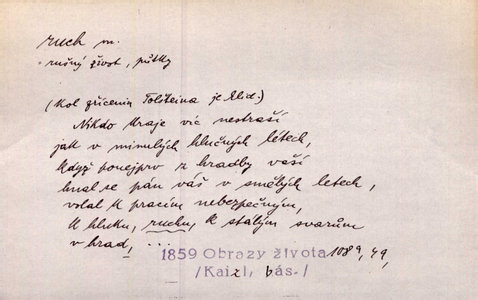 ruch m.
rušný život, půtky
(Kol zřícenin Tolšteina je klid.)
Nikdo kraje víc nestraší
jak v minulých hlučných létech,
když ponejprv z hradby vaší
hnal se pán váš v smělých letech,
volal k pracím nebezpečným,
k hluku, ruchu, k stálým svarům
v hrad, ...
1859 Obrazy života 1089, 49,
/Kaizl, bás./